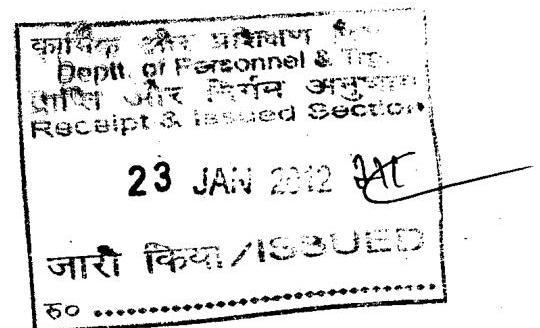 कार्मिक और प्रशिक्षण
Deptt. of Personnel & Trg.
प्राप्ति और निर्गम अनुभाग
Receipt & Issued Section
23 JAN 2012
जारी किया/ISSUED
रु०....................